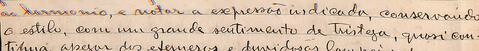 ao harmonio, e notar a expressão indicada, conservando
o estilo, com um grande sentimento de tristeza, quasi con-
apesar dos efemeros e duvidosos